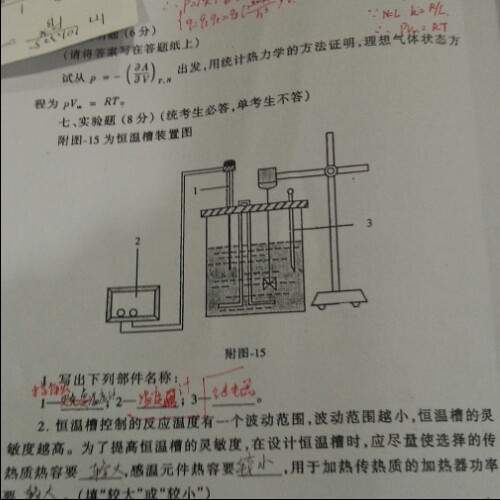 题(6分)
(请将答案写在答题纸上)
试从 p = -(∂A/∂V)T,n 出发,用统计热力学的方法证明,理想气体状态方
程为 pVm = RT。
七、实验题(8分)(统考生必答,单考生不答)
附图-15为恒温槽装置图
1
2
3
附图-15
1. 写出下列部件名称:
1— ;2— ;3— 。
2. 恒温槽控制的反应温度有一个波动范围,波动范围越小,恒温槽的灵
敏度越高。为了提高恒温槽的灵敏度,在设计恒温槽时,应尽量使选择的传
热质热容要 较大 ,感温元件热容要 较小 ,用于加热传热质的加热器功率
要 较大 。(填“较大”或“较小”)